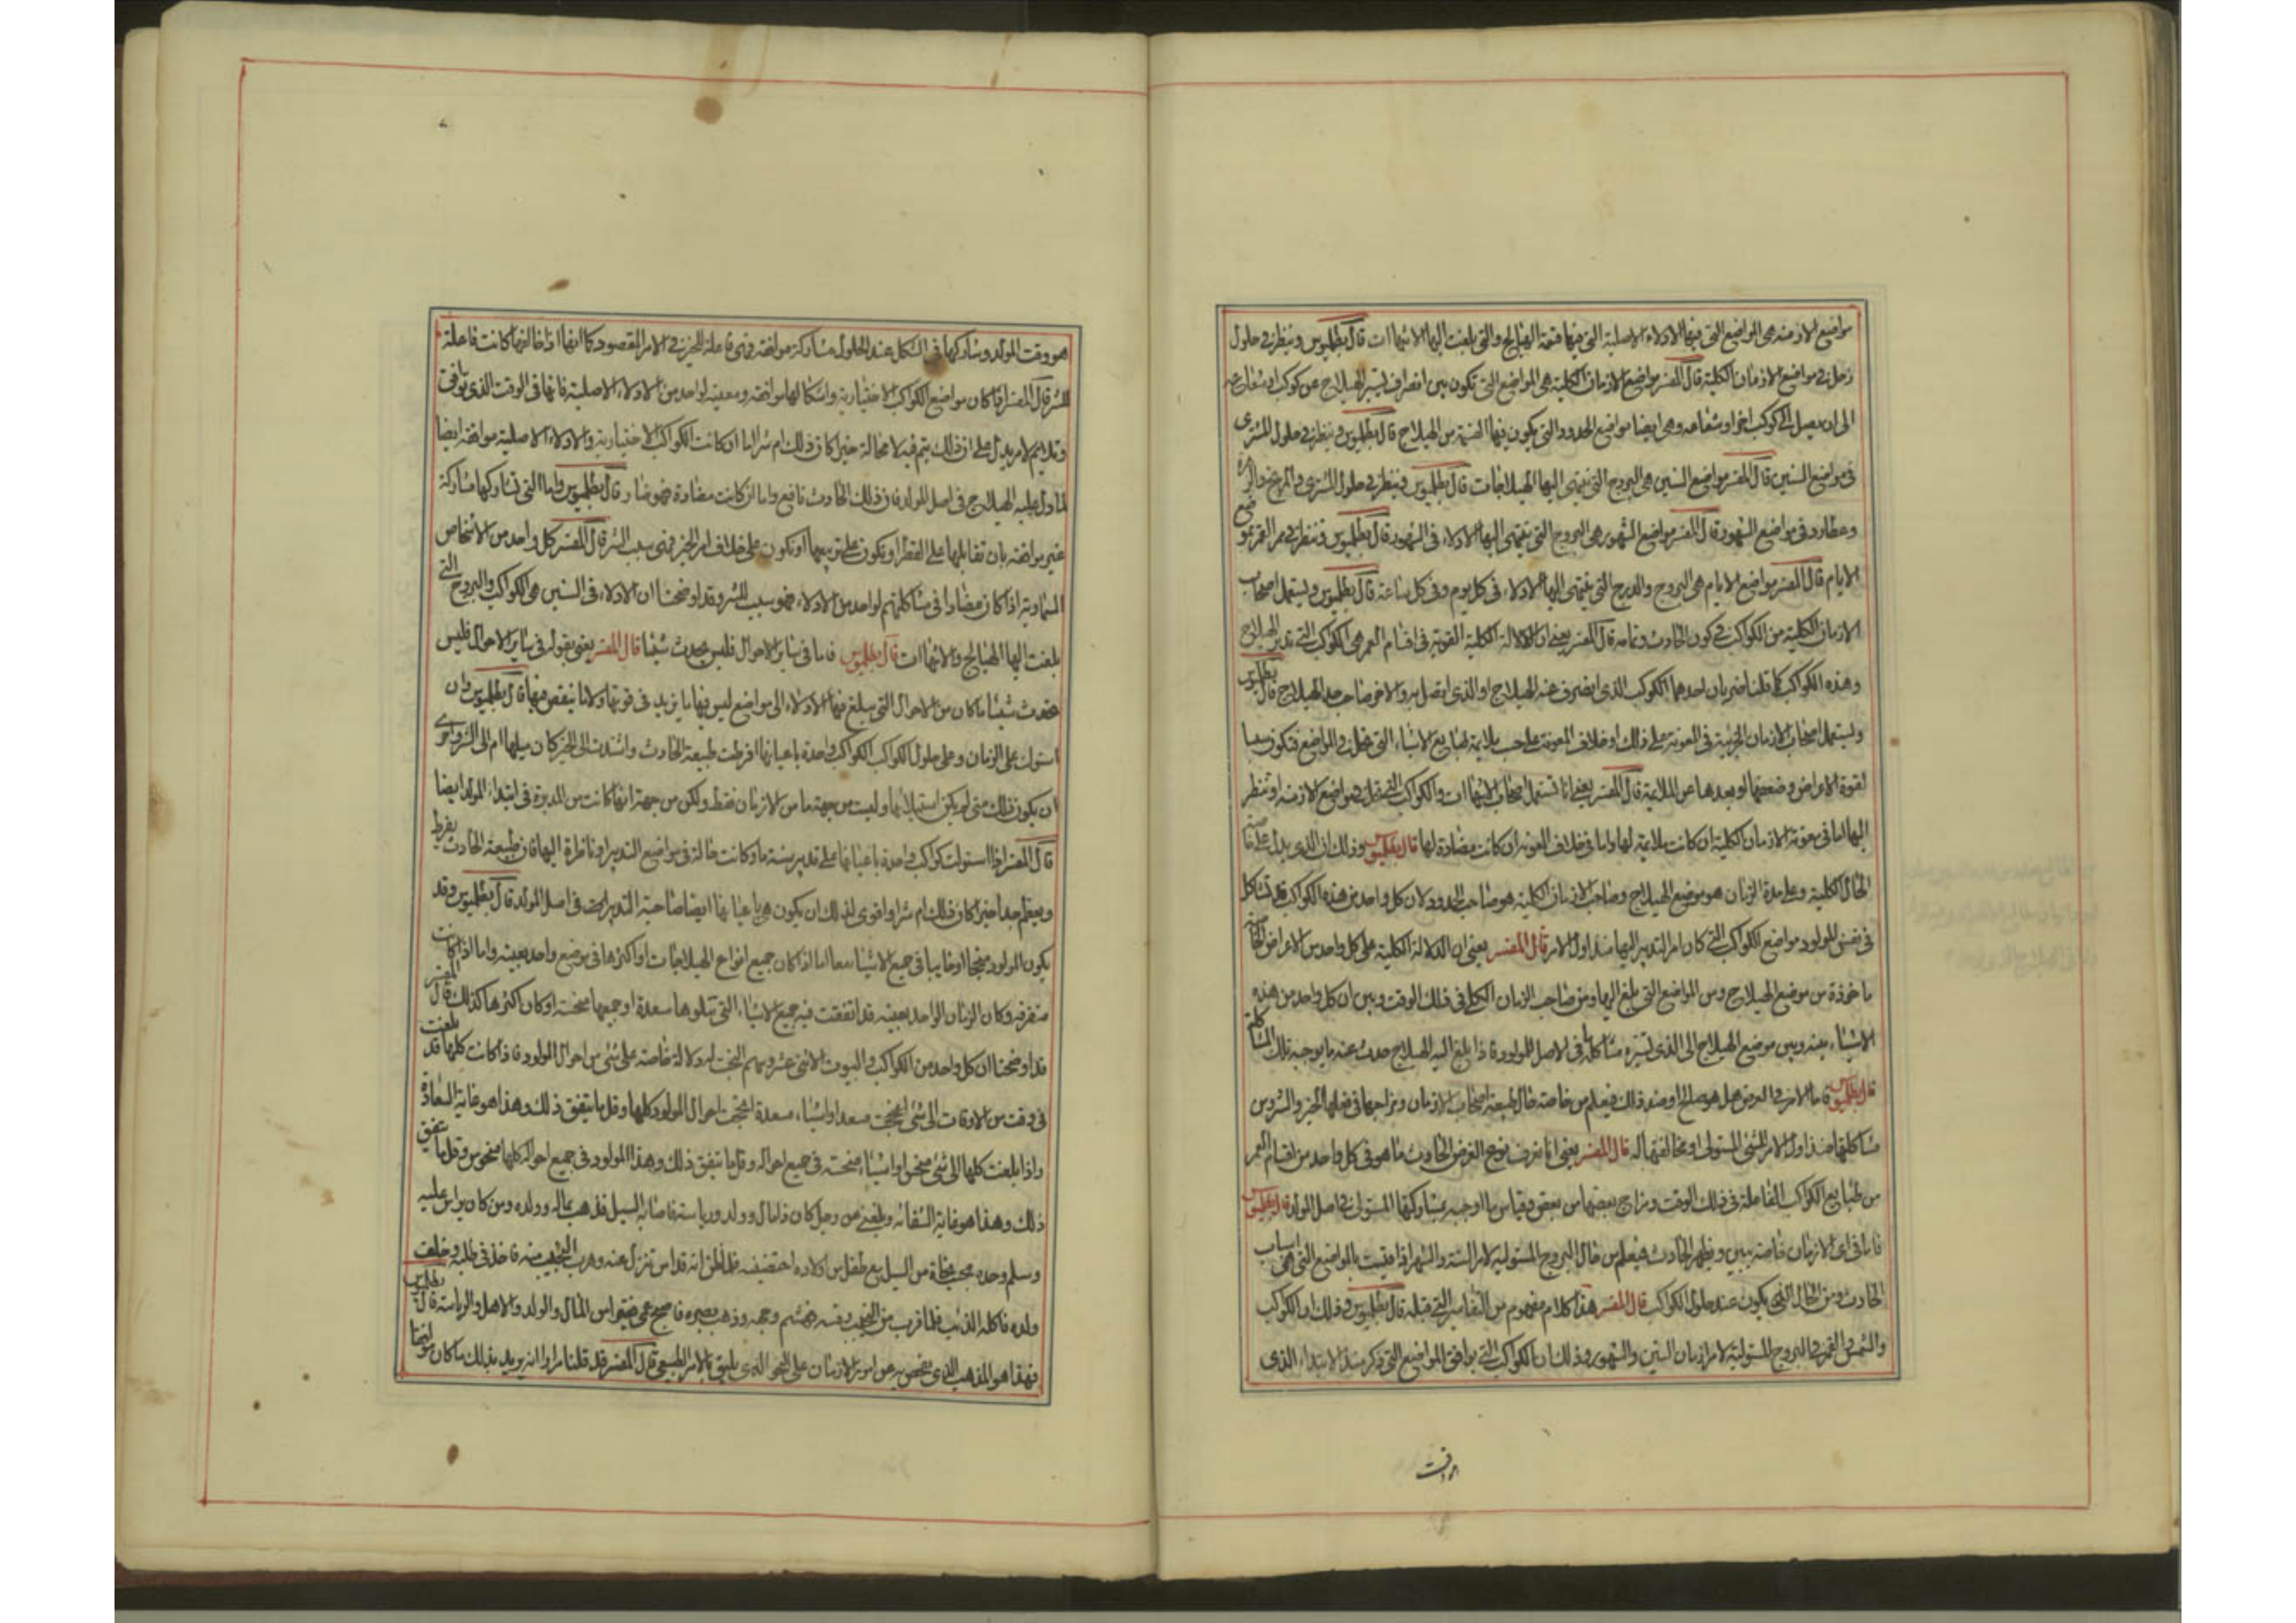 مواضع الازمنه هى المواضع التى فيها الاولاء الاصلية التى فيها قسمة الهيالج والتى بلغت اليها الانتهاآت قال بطلميوس وينظر فى حلول
زحل فى مواضع الازمان الكلية قال المفسر مواضع الازمان الكلية هى المواضع التى تكون بين انصراف تسيير الهيلاج عن كوكب او شعاعه
الى ان يصل الى كوكب اخر او شعاعه وهى ايضا مواضع الحدود التى يكون فيها القسمة من الهيلاج قال بطلميوس وينظر فى حلول المشترى
فى مواضع السنين قال المفسر مواضع السنين هى البروج التى ينتهى اليها الهيلاجات قال بطلميوس وينظر فى حلول المشترى والمريخ والزهرة
وعطارد فى مواضع الشهور قال المفسر مواضع الشهور هى البروج التى ينتهى اليها الاولاء فى الشهور قال بطلميوس وننظر فى ممر القمر بمواضع
الايام قال المفسر مواضع الايام هى البروج والدرج التى ينتهى اليها الاولاء فى كل يوم وفى كل ساعة قال بطلميوس ويستعمل اصحاب
الازمان الكلية من الكواكب فى كون الحادث وتمامه قال المفسر يعنى ان الدلالة الكلية القوية فى اقسام العمر هى الكواكب التى تدبر الهيلاج
وهذه الكواكب كما قلنا ضربان احدهما الكوكب الذى انصرف عنه الهيلاج او الذى اتصل به والاخر صاحب حد الهيلاج قال بطلميوس
ويستعمل اصحاب الازمان الجزئية فى المعونة على ذلك او خلاف المعونة على حسب ملايمة طبايع الاشياء التى تحل فى المواضع فتكون سببا
لقوة الاعراض وضعفها او بعدها عن الملايمة قال المفسر يعنى انا نستعمل اصحاب الانتهاآت والكواكب التى تحل فى مواضع الازمنه او تنظر
اليها اما فى معونة الازمان الكلية ان كانت ملايمة لها واما فى خلاف المعونة ان كانت مضادة لها قال بطلميوس وذلك ان الذى يدل على خاصة
الحال الكلية وعلى مدة الزمان هو موضع الهيلاج وصاحب الازمان الكلية هو صاحب الحدود لان كل واحد من هذه الكواكب قد تشاكل
فى نفس المولود مواضع الكواكب التى كان امر التدبير اليها منذ اول الامر قال المفسر يعنى ان الدلالة الكلية على كل واحد من الاعراض الخاصة
ماخوذة من موضع الهيلاج ومن المواضع التى بلغ اليها ومن صاحب الزمان الكلى فى ذلك الوقت وبين ان كل واحد من هذه
الاشياء بينه وبين موضع الهيلاج الى الذى تسيره مشاكلة ما فى الاصل للمولود فاذا بلغ اليه الهيلاج حدث عنه ما يوجبه تلك المشاكلة
قال بطلميوس فاما الامر فى العرض هل هو صالح او ضد ذلك فيعلم من خاصة حال طبيعة اصحاب الازمان ومزاجها فى فعلها الخير والشر ومن
مشاكلتها منذ اول الامر للشئ المستولى او مخالفتها له قال المفسر يعنى انا نعرف نوع العرض الحادث ما هو فى كل واحد من اقسام العمر
من طبايع الكواكب الفاعلة فى ذلك الوقت ومزاج بعضها من بعض وقياس ما اوجبه بمشاركتها المستولى فى اصل المولد قال بطلميوس
فاما فى اى الازمان خاصة يبين ويظهر الحادث فيعلم من حال البروج المستولية لامر السنة والشهر اذا قيست بالمواضع التى هى اسباب
الحادث ومن الحال التى يكون عند حلول الكواكب قال المفسر هذا كلام مفهوم من التفاسير التى قبله قال بطلميوس وذلك ان الكواكب
والشمس والقمر والبروج المستولية لامر ازمان السنين والشهور وذلك ان الكواكب التى يوافق المواضع التى ذكر منذ الابتداء الذى
هو وقت المولد وشاركها فى الشكل عند الحلول مشاركة موافقة فهى فاعلة للخير فى الامر المقصود كما انها اذا خالفتها كانت فاعلة
للشر قال المفسر اذا كان مواضع الكواكب الاختيارية واشكالها موافقه ومعينه لواحد من الاولاء الاصلية فانها فى الوقت الذى توافق
وتلايم لامر يدل على ان ذلك يتم فيه لا محالة خيرا كان ذلك ام شرا اما ان كانت الكواكب الاختيارية والاولاء الاصلية موافقه ايضا
لما دل عليه الهيلاج فى اصل المولد فان ذلك الحادث نافع واما ان كانت مضادة فهو ضار قال بطلميوس واما التى تشاركها مشاركة
غير موافقه بان تقابلها على القطر او يكون على تربيعها او تكون على خلاف امر الخير فهى سبب الشر قال المفسر كل واحد من الاشخاص
السماوية اذا كان مضادا فى مشاكلتهم لواحد من الاولاء فهو سبب للشر وقد اوضحنا ان الاولاء فى السنين هى الكواكب والبروج التى
بلغت اليها الهيالج والانتهاآت قال بطلميوس فاما فى ساير الاحوال فليس يحدث شيئا قال المفسر يعنى بقوله فى ساير الاحوال فليس
يحدث شيئا ما كان من الاحوال التى يبلغ فيها الاولاء الى مواضع ليس فيها ما يزيد فى قوتها ولا ما ينقص منها قال بطلميوس وان
استولت على الزمان وعلى حلول الكواكب الكواكب واحدة باعيانها افرطت طبيعة الحادث واشتدت الى الخير كان ميلها ام الى الشر واحرى
ان يكون ذلك متى لم يكن استيلائها وليت من جهة ما من الازمان فقط ولكن من جهة انها كانت من المدبرة فى ابتداء المولد ايضا
قال المفسر اذا استولت كواكب واحدة باعيانها على تدبير سنة ما وكانت حالة فى مواضع التدبير او ناظرة اليها فان طبيعة الحادث يفرط
ويعظم جدا خيرا كان ذلك ام شرا واقوى لذلك ان يكون هى باعيانها ايضا صاحبة التدبير فى اصل المولد قال بطلميوس وقد
يكون المولود منجحا او خايبا فى جميع الاشياء معا اما اذا كان جميع انواع الهيلاجات او اكثرها فى موضع واحد بعينه واما اذا كانت
متفرقه وكان الزمان الواحد بعينه قد اتفقت فيه جميع الاشياء التى تتلوها سعدة او جميعها منحسة او كان اكثرها كذلك قال المفسر
قد اوضحنا ان كل واحد من الكواكب والبيوت الاثنى عشر وسهم البخت له دلالة خاصة على شئ من احوال المولود فاذا كانت كلها قد بلغت
فى وقت من الاوقات الى شئ مسعد او اشياء مسعدة انجحت احوال المولود كلها وقل ما يتفق ذلك وهذا هو غاية السعادة
واذا بلغت كلها الى شئ منحس او اشياء منحسة فى جميع احواله وقلما يتفق ذلك وهذا المولود فى جميع احواله كلها منحوس وقل ما يتفق
ذلك وهذا هو غاية الشقاء وبلغنى عن رجل كان ذا مال وولد ورياسة فاصابه السيل فذهب بماله وولده ومن كان يراس عليه
وسلم وحده مع طفل من اولاده احتضنه فلما ظن انه قد امن تنزل عنه وهرب النجيب منه فاخذ فى طلبه وخلف
ولده فاكله الذئب فلما قرب من النجيب رفسه فهشم وجهه وذهب بصره فاصبح اعمى فقيرا من المال والولد والاهل والرياسة قال بطلميوس
فهذا هو المذهب الذى يخص به عوامر الازمان على النحو الذى يليق بالامر الطبيعى قال المفسر قد قلنا مرارا انه يريد بذلك ما كان
هو وقت